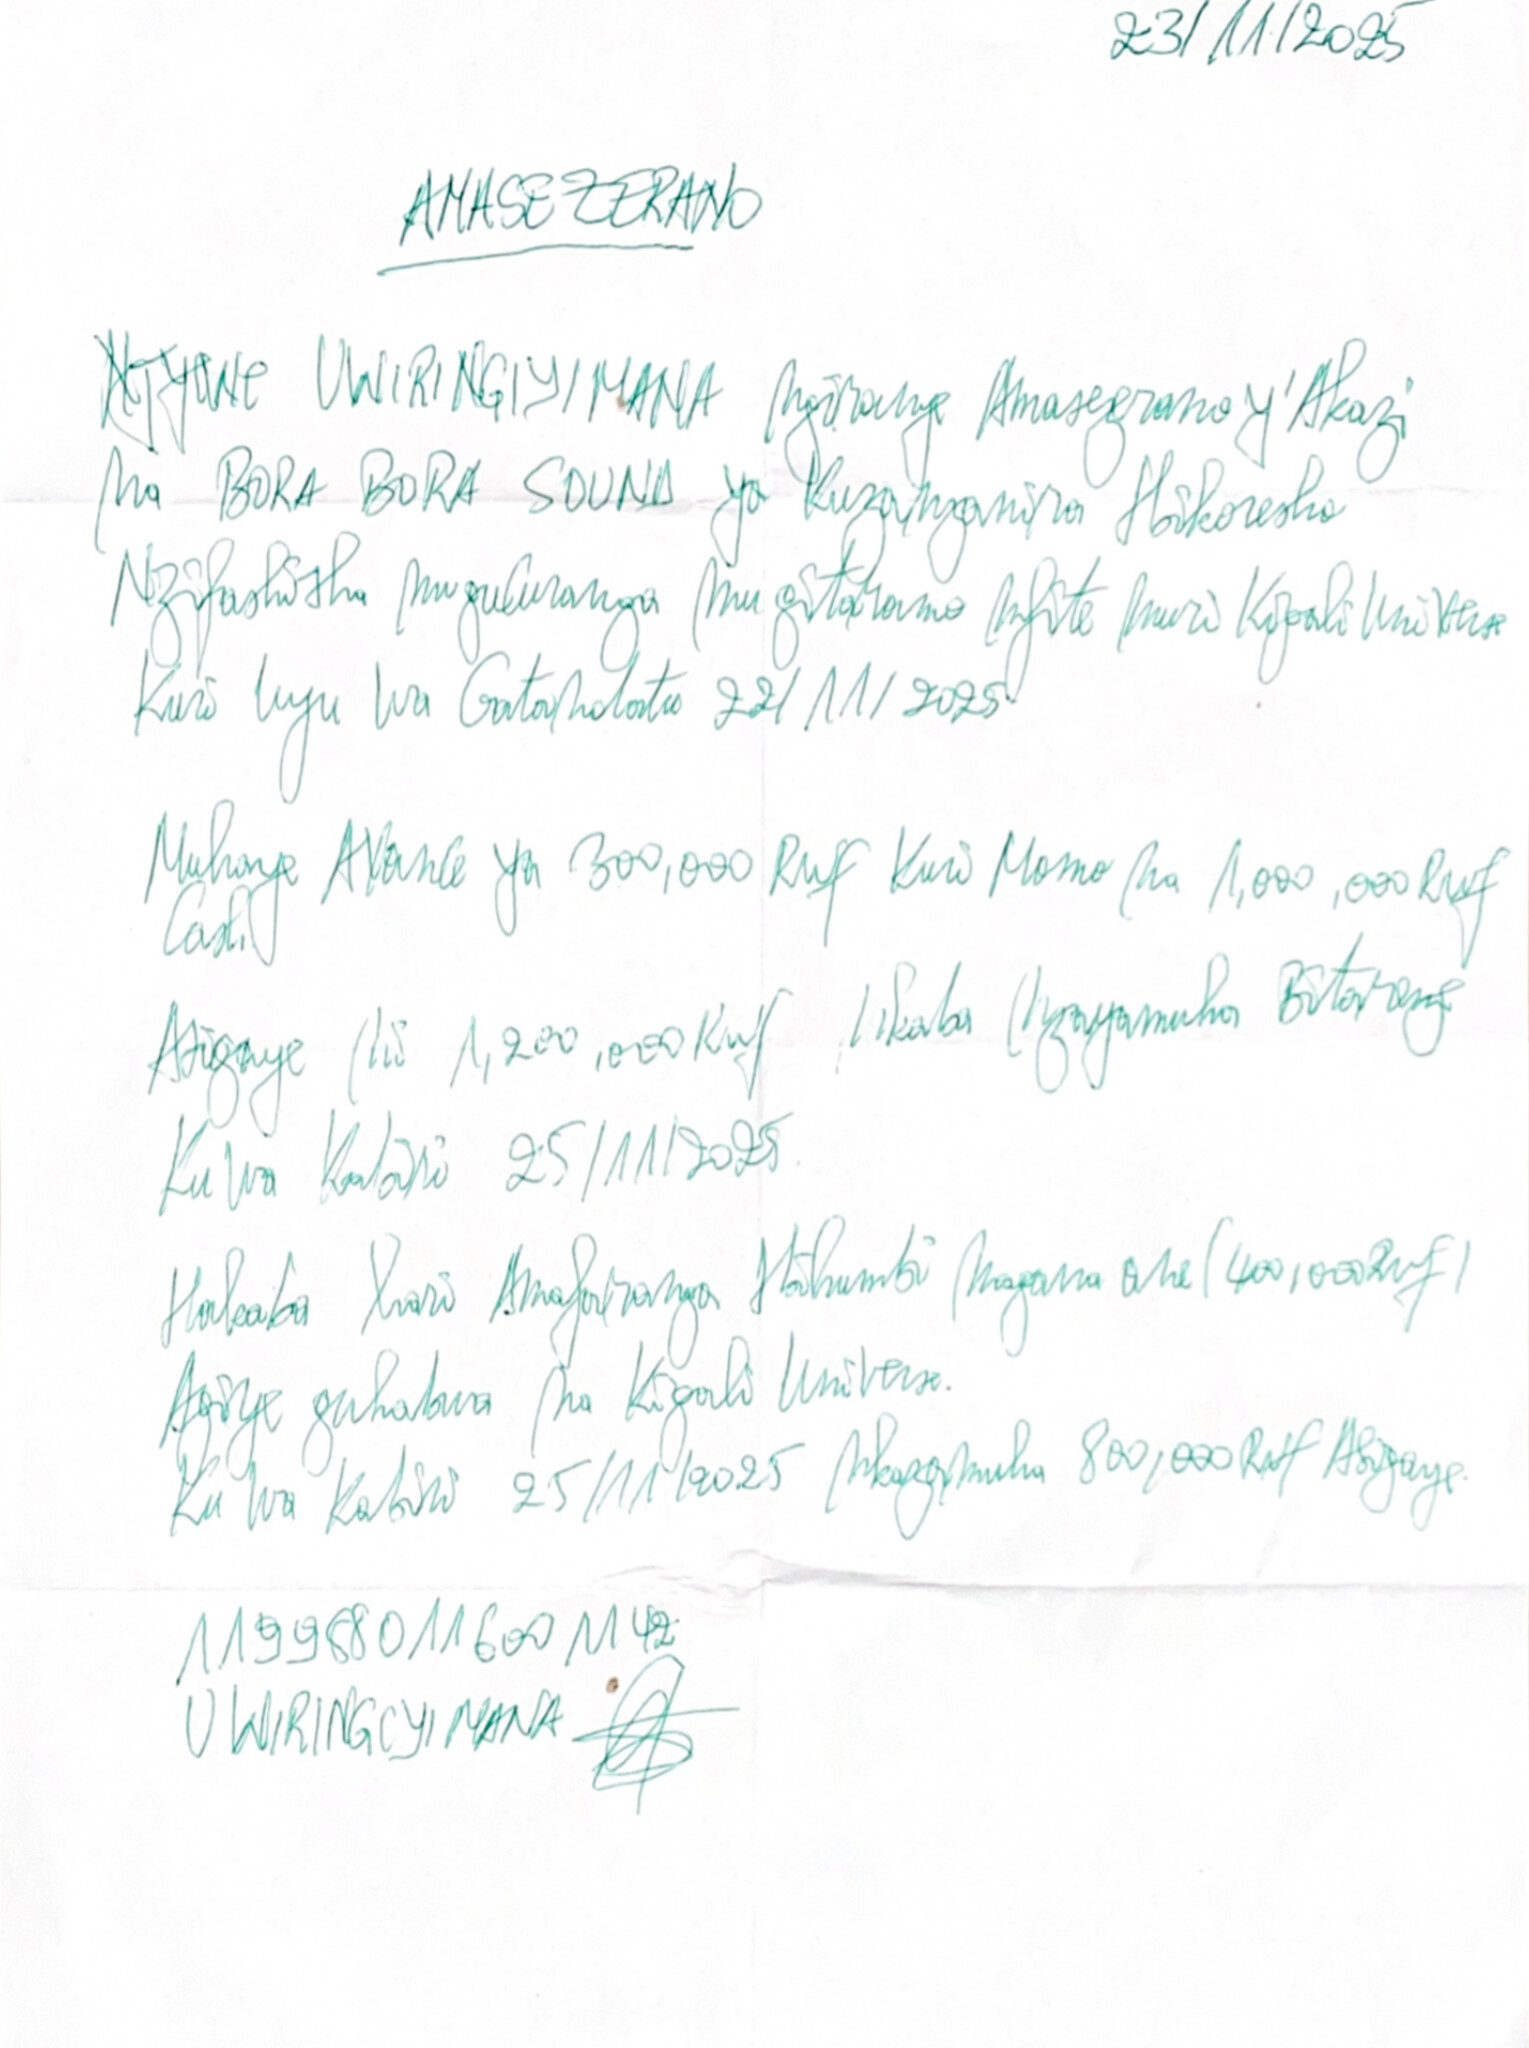 23/11/2025
AMASEZERANO
Njyewe UWIRINGIYIMANA Ngiranye Amasezerano y'Akazi
na BORA BORA SOUND yo Kuzanzanira Ibikoresho
Nzifashisha mugucuranga mu gitaramo mfite muri Kigali Universe
Kuri uyu wa Gatandatu 22/11/2025.
Muhaye Avance ya 300,000 Rwf Kuri Momo na 1,000,000 Rwf
Cash.
Asigaye ni 1,200,000 Rwf Nkaba Nzayamuha Bitarenze
Ku wa Kabiri 25/11/2025.
Hakaba hari Amafaranga Ibihumbi magana ane (400,000 Rwf)
Agiye guhabwa na Kigali Universe.
Ku wa Kabiri 25/11/2025 Nkazamuha 800,000 Rwf Asigaye.
UWIRINGIYIMANA